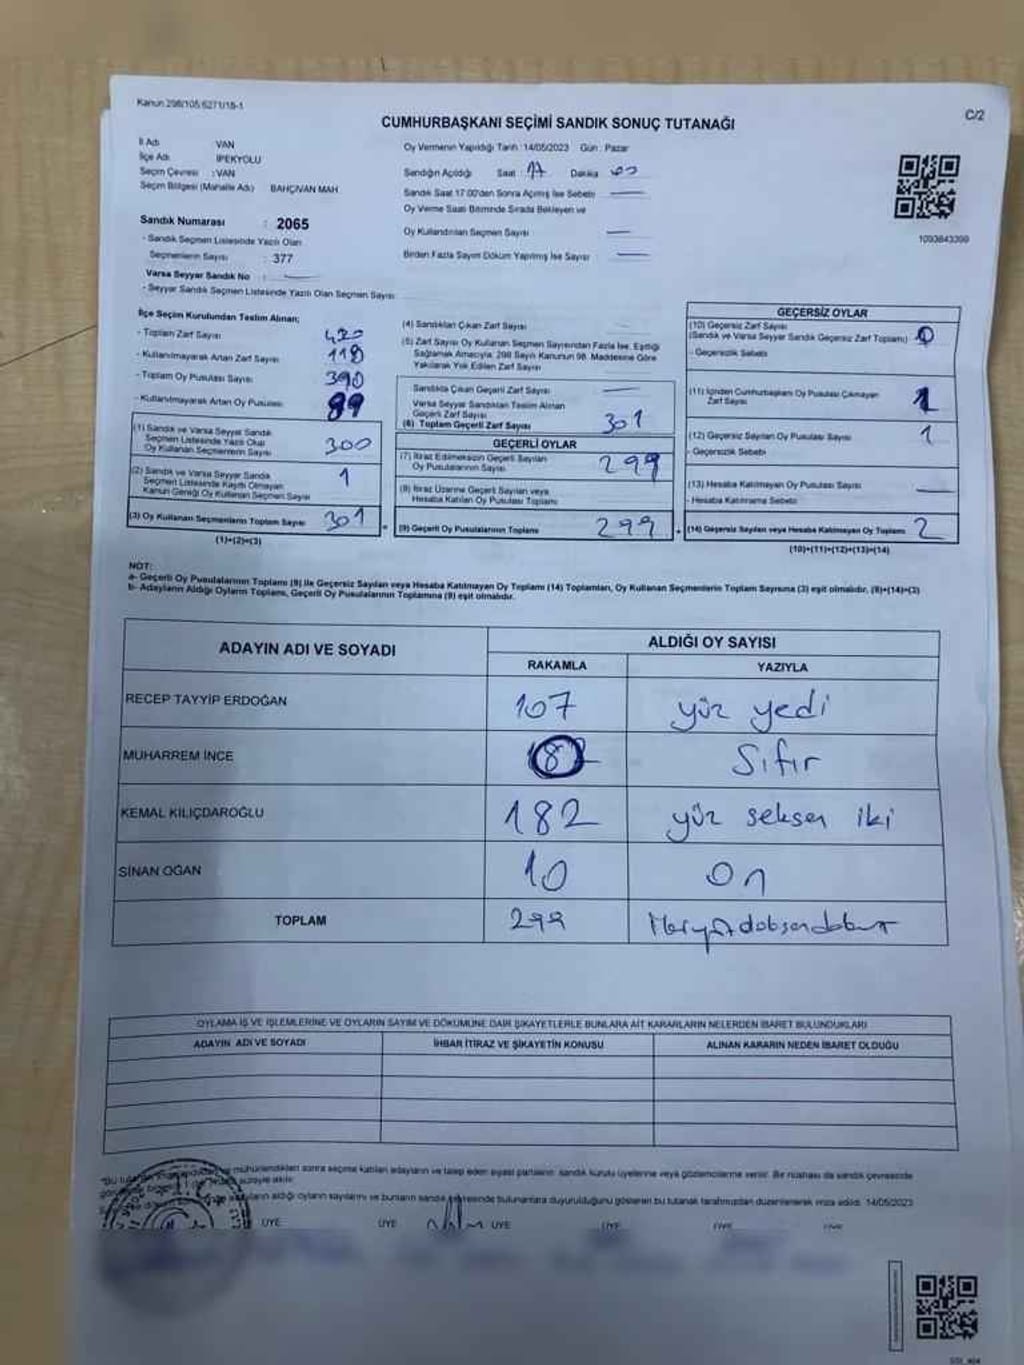 Kanun 298/105 6271/18-1
C/2
CUMHURBAŞKANI SEÇİMİ SANDIK SONUÇ TUTANAĞI
İl Adı VAN
İlçe Adı İPEKYOLU
Seçim Çevresi : VAN
Seçim Bölgesi (Mahalle Adı) BAHÇIVAN MAH.
Sandık Numarası : 2065
- Sandık Seçmen Listesinde Yazılı Olan
Seçmenlerin Sayısı : 377
Varsa Seyyar Sandık No :
- Seyyar Sandık Seçmen Listesinde Yazılı Olan Seçmen Sayısı
Oy Vermenin Yapıldığı Tarih : 14/05/2023 Gün : Pazar
Sandığın Açıldığı Saat : 17 Dakika 00
Sandık Saat 17:00'den Sonra Açılmış İse Sebebi
Oy Verme Saati Bitiminde Sırada Bekleyen ve
Oy Kullandırılan Seçmen Sayısı
Birden Fazla Sayım Döküm Yapılmış İse Sayısı
1093843399
İlçe Seçim Kurulundan Teslim Alınan;
- Toplam Zarf Sayısı 420
- Kullanılmayarak Artan Zarf Sayısı 118
- Toplam Oy Pusulası Sayısı 390
- Kullanılmayarak Artan Oy Pusulası 89
(1) Sandık ve Varsa Seyyar Sandık
Seçmen Listesinde Yazılı Olup
Oy Kullanan Seçmenlerin Sayısı 300
(2) Sandık ve Varsa Seyyar Sandık
Seçmen Listesinde Kayıtlı Olmayan
Kanun Gereği Oy Kullanan Seçmen Sayısı 1
(3) Oy Kullanan Seçmenlerin Toplam Sayısı 301
(1)+(2)=(3)
(4) Sandıktan Çıkan Zarf Sayısı
(5) Zarf Sayısı Oy Kullanan Seçmen Sayısından Fazla İse, Eşitliği
Sağlamak Amacıyla, 298 Sayılı Kanunun 98. Maddesine Göre
Yakılarak Yok Edilen Zarf Sayısı
Sandıkta Çıkan Geçerli Zarf Sayısı
Varsa Seyyar Sandıktan Teslim Alınan
Geçerli Zarf Sayısı
(6) Toplam Geçerli Zarf Sayısı 301
GEÇERLİ OYLAR
(7) İtiraz Edilmeksizin Geçerli Sayılan
Oy Pusulalarının Sayısı 299
(8) İtiraz Üzerine Geçerli Sayılan veya
Hesaba Katılan Oy Pusulası Toplamı
(9) Geçerli Oy Pusulalarının Toplamı 299
GEÇERSİZ OYLAR
(10) Geçersiz Zarf Sayısı
(Sandık ve Varsa Seyyar Sandık Geçersiz Zarf Toplamı) 0
- Geçersizlik Sebebi
(11) İçinden Cumhurbaşkanı Oy Pusulası Çıkmayan
Zarf Sayısı 1
(12) Geçersiz Sayılan Oy Pusulası Sayısı 1
- Geçersizlik Sebebi
(13) Hesaba Katılmayan Oy Pusulası Sayısı
- Hesaba Katılmama Sebebi
(14) Geçersiz Sayılan veya Hesaba Katılmayan Oy Toplamı 2
(10)+(11)+(12)+(13)=(14)
NOT:
a- Geçerli Oy Pusulalarının Toplamı (9) ile Geçersiz Sayılan veya Hesaba Katılmayan Oy Toplamı (14) Toplamları, Oy Kullanan Seçmenlerin Toplam Sayısına (3) eşit olmalıdır. (9)+(14)=(3)
b- Adayların Aldığı Oyların Toplamı, Geçerli Oy Pusulalarının Toplamına (9) eşit olmalıdır.
ADAYIN ADI VE SOYADI ALDIĞI OY SAYISI
RAKAMLA YAZIYLA
RECEP TAYYİP ERDOĞAN 107 yüz yedi
MUHARREM İNCE Sıfır
KEMAL KILIÇDAROĞLU 182 yüz seksen iki
SİNAN OĞAN 10 On
TOPLAM 299
OYLAMA İŞ VE İŞLEMLERİNE VE OYLARIN SAYIM VE DÖKÜMÜNE DAİR ŞİKAYETLERLE BUNLARA AİT KARARLARIN NELERDEN İBARET BULUNDUKLARI
ADAYIN ADI VE SOYADI İHBAR İTİRAZ VE ŞİKAYETİN KONUSU ALINAN KARARIN NEDEN İBARET OLDUĞU
mühürlendikten sonra seçime katılan adayların ve talep eden siyasi partilerin sandık kurulu üyelerine veya gözlemcilerine verilir. Bir nüshası da sandık çevresinde
aldığı oyların sayılarını ve bunların sandık çevresinde bulunanlara duyurulduğunu gösteren bu tutanak tarafımızdan düzenlenerek imza edildi. 14/05/2023
ÜYE ÜYE ÜYE ÜYE ÜYE ÜYE